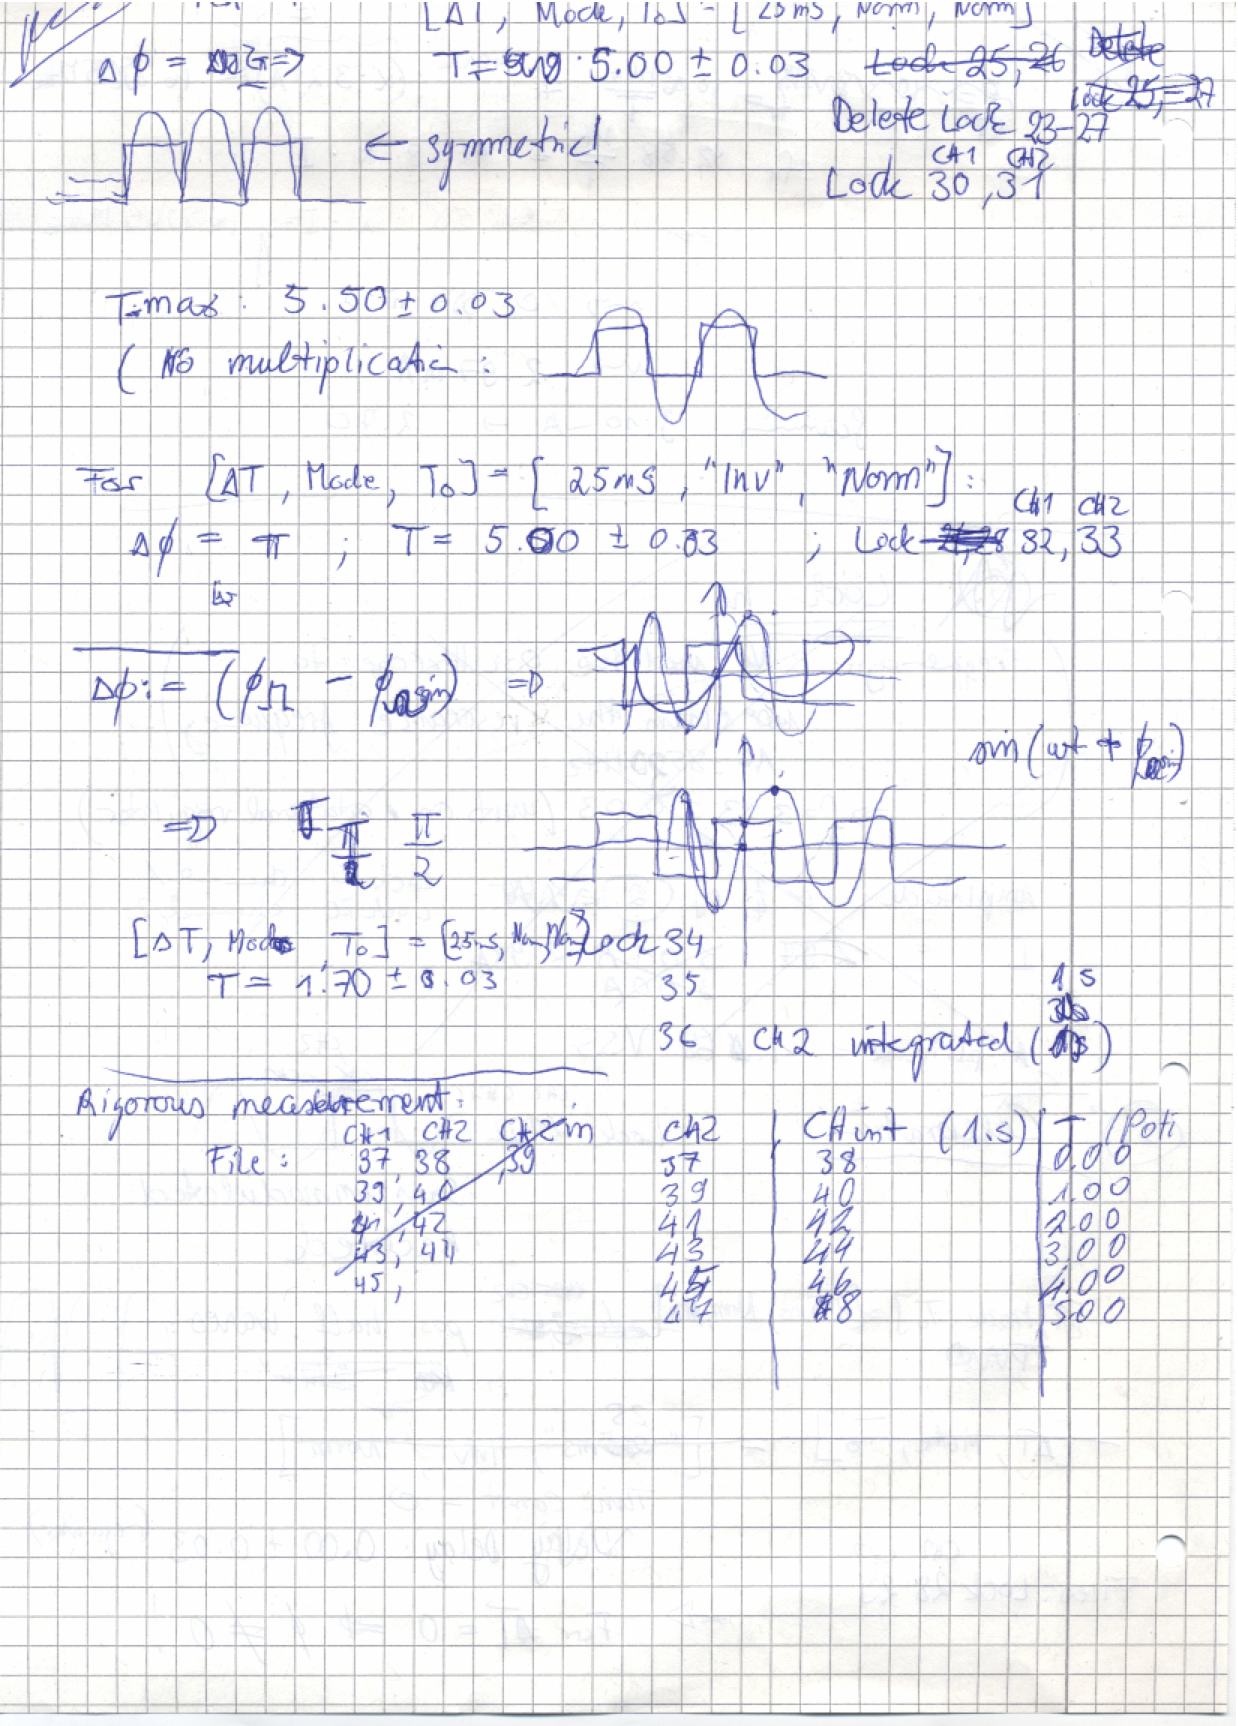 [ΔT, Mode, T₀] = [25ms, Norm, Norm]
Δϕ = ⇒ T = 5.00 ± 0.03 Lock 25, 26 Delete
Lock 25, 27
← symmetric! Delete Lock 23-27
CH1 CH2
Lock 30, 31
Tmax: 5.50 ± 0.03
( No multiplication:
For [ΔT, Mode, T₀] = [25ms, "Inv", "Norm"]:
CH1 CH2
Δϕ = π ; T = 5.00 ± 0.03 ; Lock 32, 33
Δϕ := (ϕΩ - ϕsin) ⇒
sin(ωt + ϕsin)
⇒ π/2
[ΔT, Mode, T₀] = [25ms, Norm, Norm] Lock 34
T = 1.70 ± 0.03 35
1s
36 CH2 integrated ( )
Rigorous measurement:
CH1 CH2 CH2in CH2 CHint (1.s) T /Poti
File: 37, 38 ,39 37 38 0.00
39, 40 39 40 1.00
41, 42 41 42 2.00
43, 44 43 44 3.00
45, 45 46 4.00
47 48 5.00